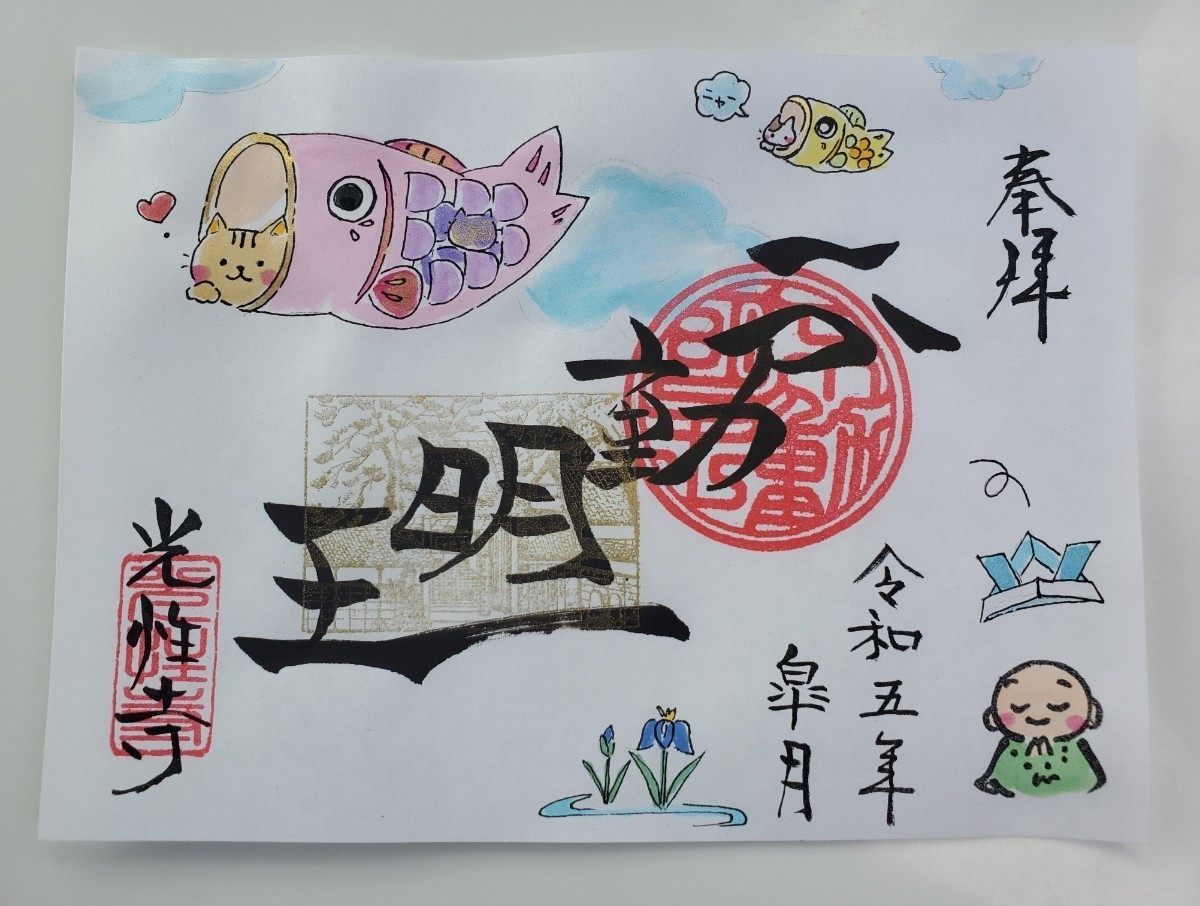 奉拝
不動明王
令和五年
皐月
光性寺
ニャー